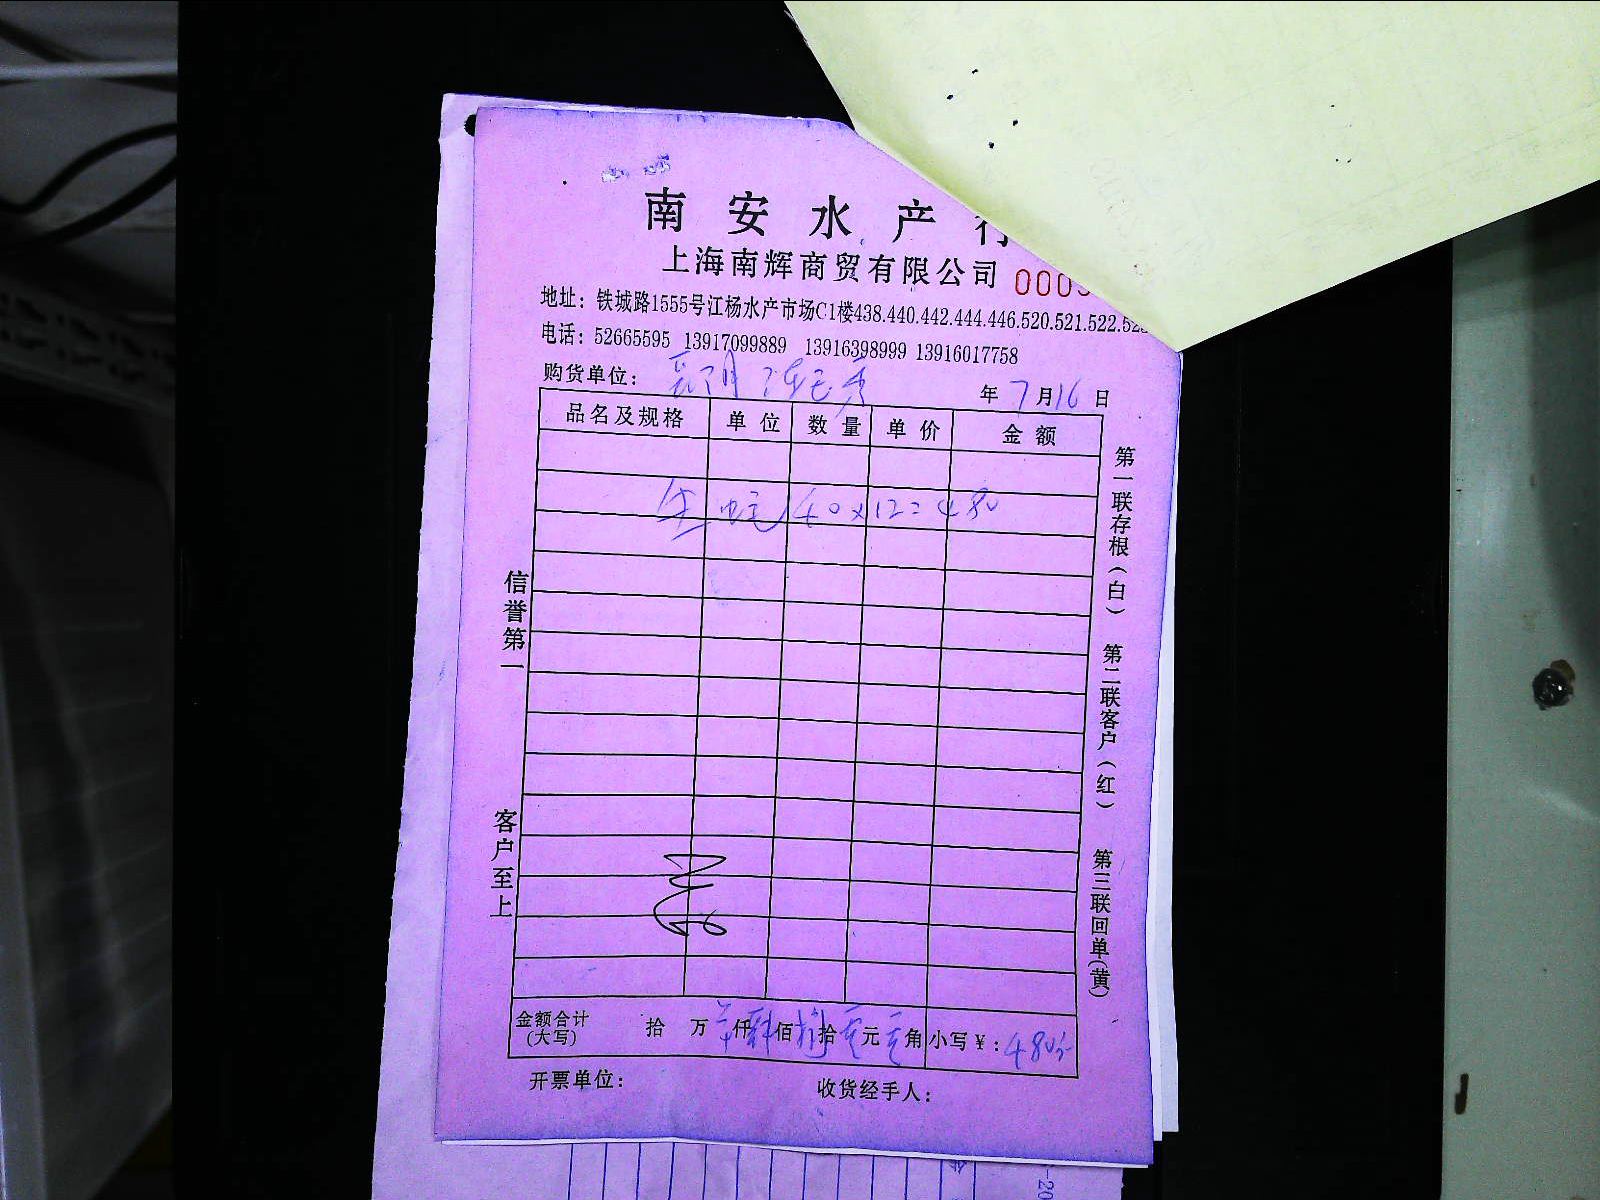 南安水产行
上海南辉商贸有限公司 000
地址：铁城路1555号江杨水产市场C1楼438.440.442.444.446.520.521.522.523
电话：52665595 13917099889 13916398999 13916017758
购货单位： 年 7 月 16 日
品名及规格 单位 数量 单价 金额
生蚝 40×12=480
信誉第一
客户至上
第一联存根（白）
第二联客户（红）
第三联回单（黄）
金额合计（大写） 拾 万 仟 肆 佰 捌 拾 元 角 小写￥：480
开票单位： 收货经手人：